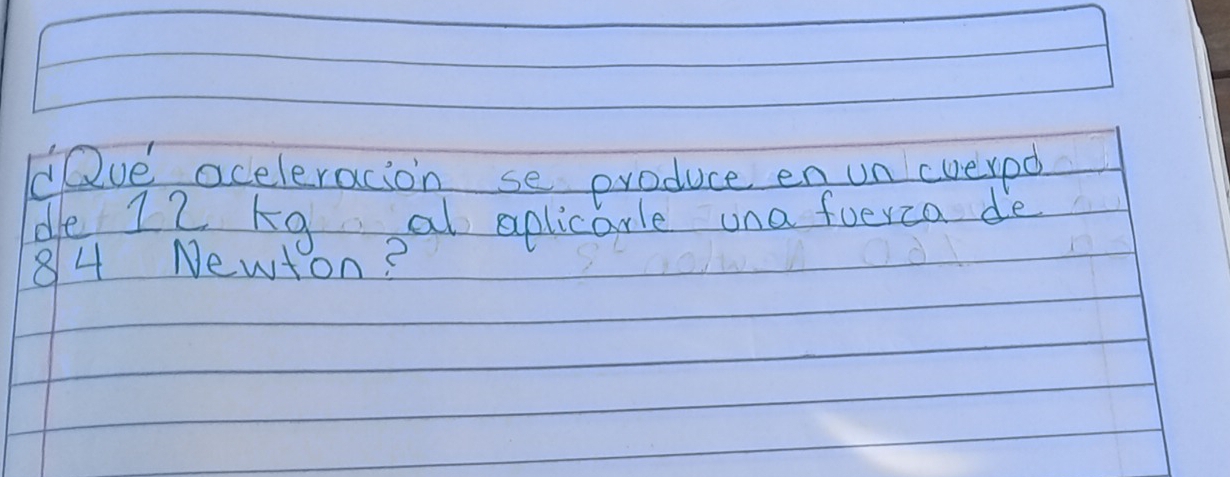 ¿Qué aceleración se produce en un cuerpo
de 12 kg al aplicarle una fuerza de
84 Newton?